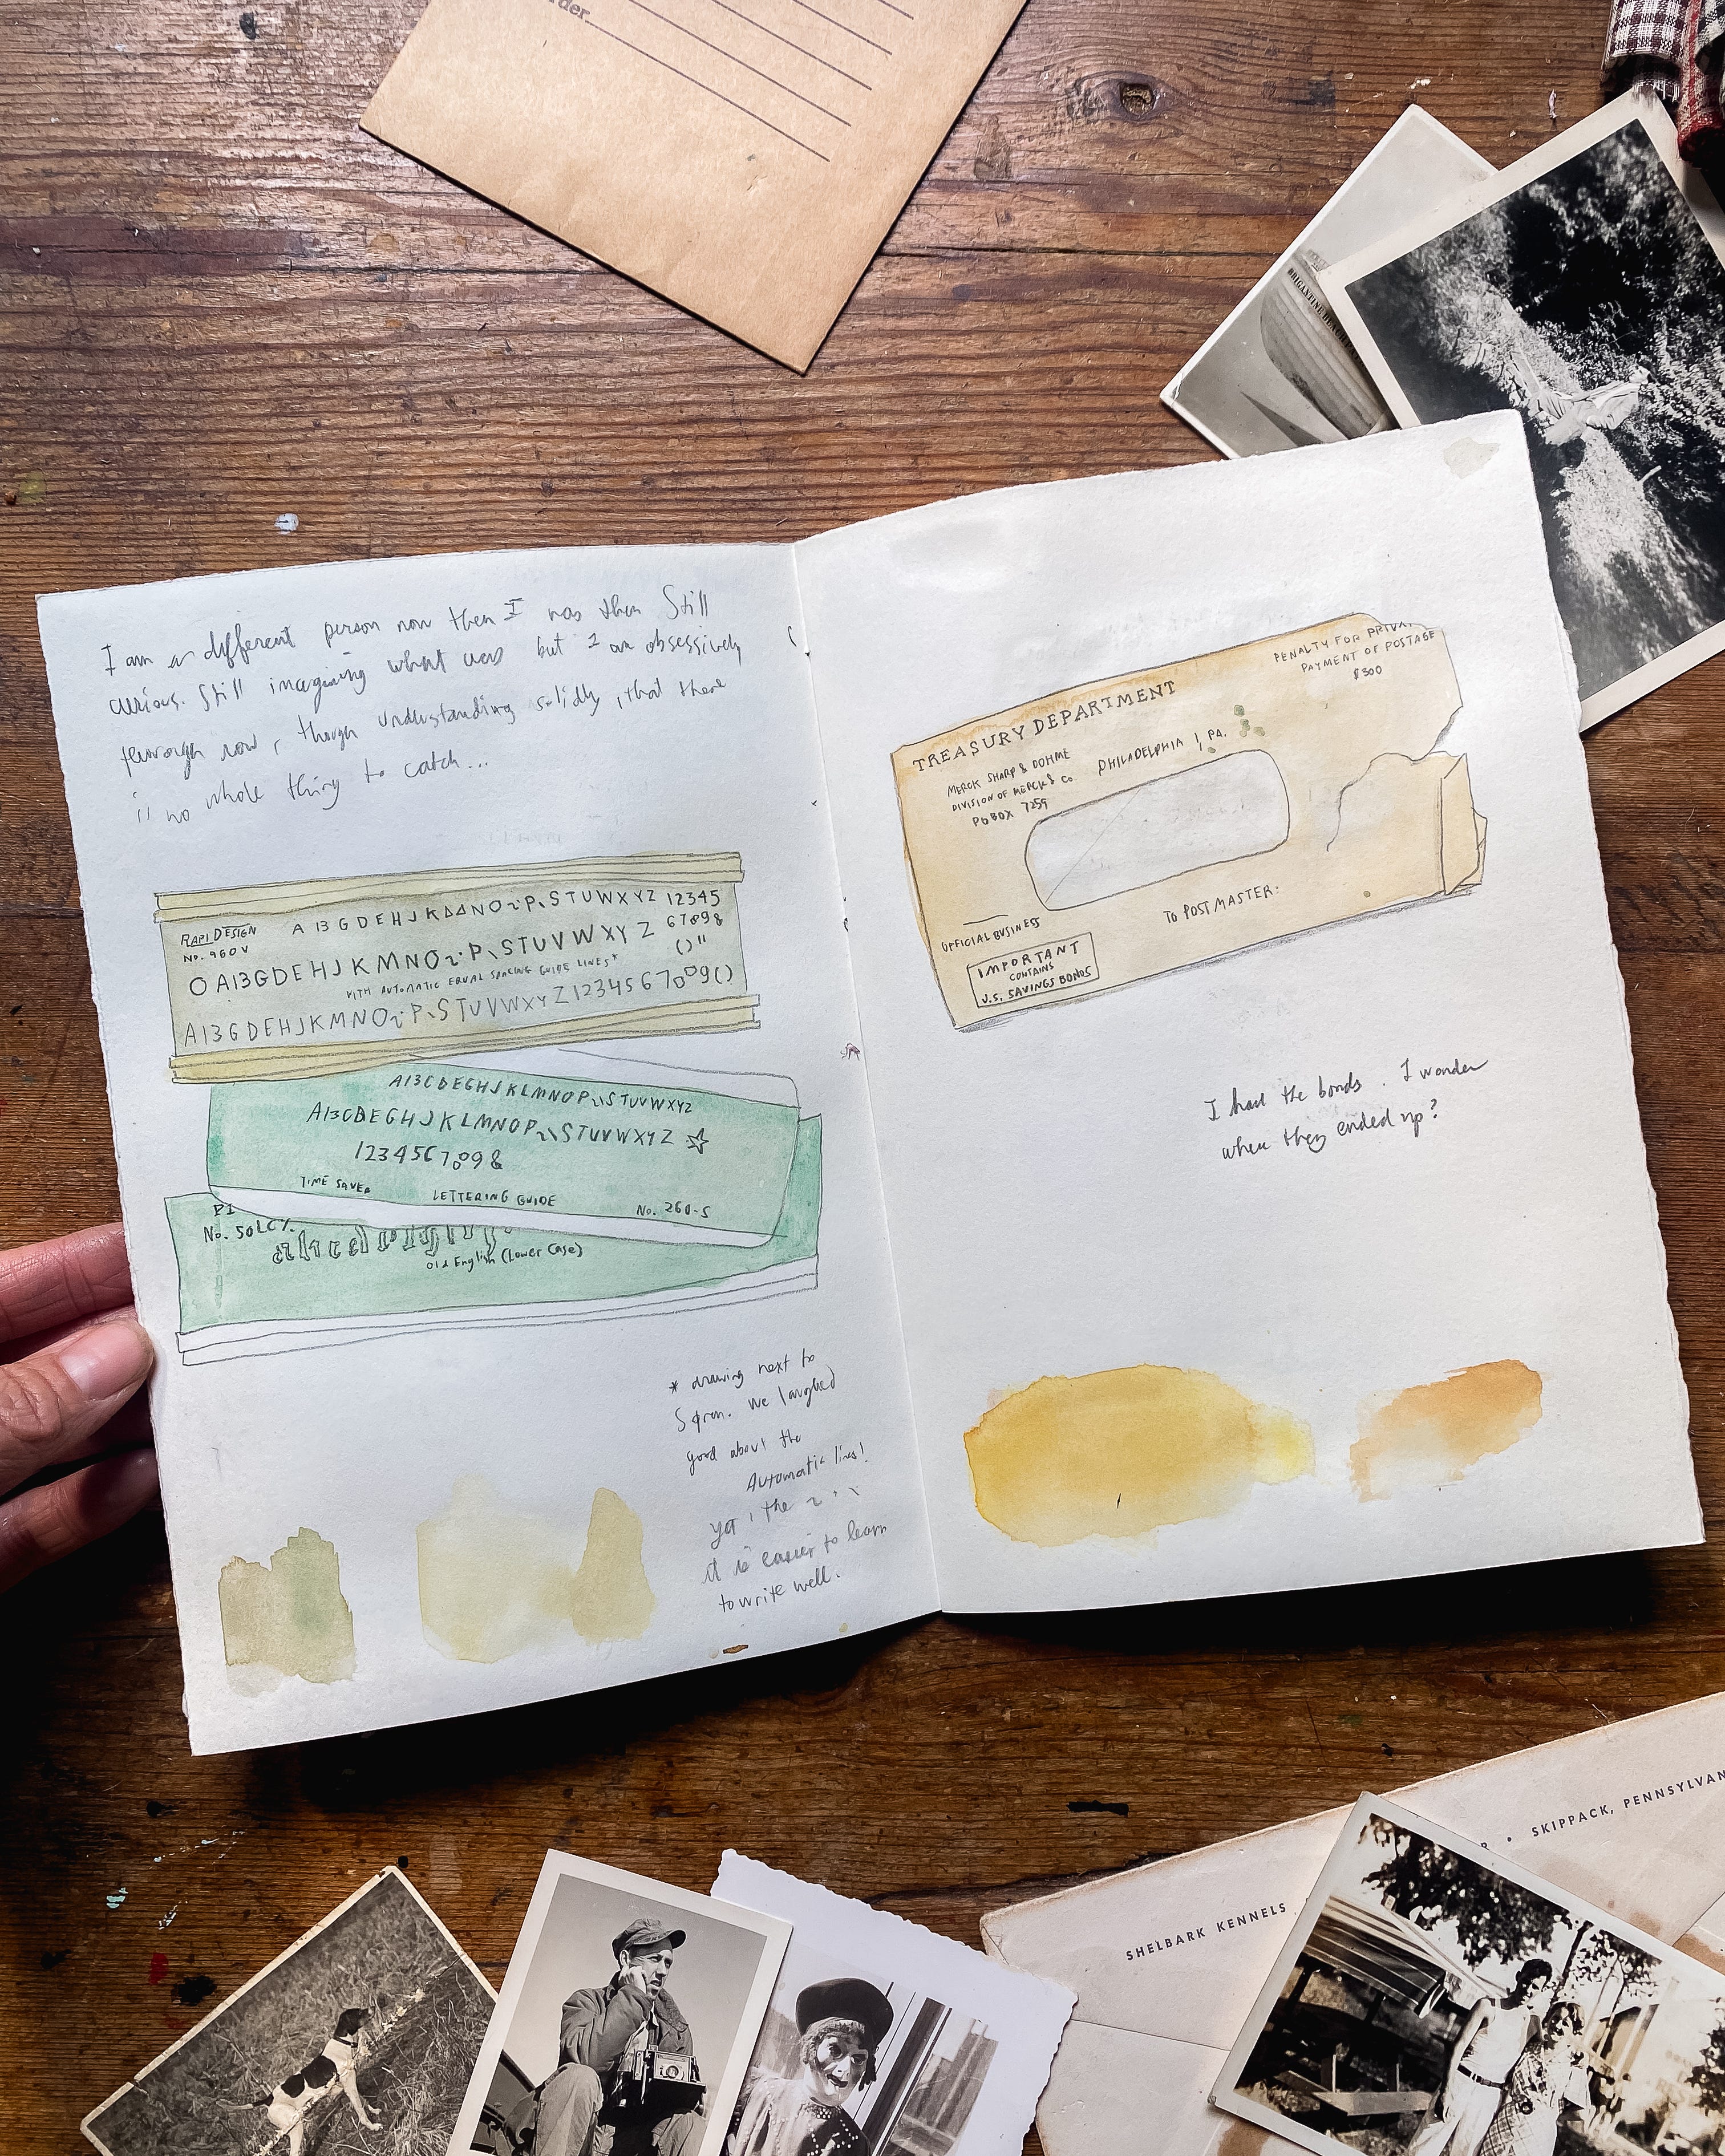 rder
BRIGANTINE BEACH
I am a different person now then I was then Still
curious. Still imagining what was but I am obsessively
thorough now, though understanding solidly, that there
is no whole thing to catch...
RAPIDESIGN
No. 960V
A 13 G D E H J K N O P S T U W X Y Z 12345
67898
O A13GDEHJKMNO P STUVWXYZ ()"
WITH AUTOMATIC EQUAL SPACING GUIDE LINES*
A13GDEHJKMNO P STUVWXYZ1234567009()
A13CDEGHJKLMNOP STUVWXYZ
A13CDEGHJKLMNOP STUVWXYZ ☆
123456709&
TIME SAVER LETTERING GUIDE No. 260-S
PI
No. 50LC
Old English (Lower Case)
* drawing next to
We laughed
good about the
Automatic lines!
it is easier to learn
to write well.
PENALTY FOR PRIVA
PAYMENT OF POSTAGE
$300
TREASURY DEPARTMENT
MERCK SHARP & DOHME PHILADELPHIA 1, PA.
DIVISION OF MERCK & Co
PO BOX 7259
OFFICIAL BUSINESS
TO POSTMASTER:
IMPORTANT
CONTAINS
U.S. SAVINGS BONDS
I had the bonds. I wonder
where they ended up?
SHELBARK KENNELS
R • SKIPPACK, PENNSYLVAN